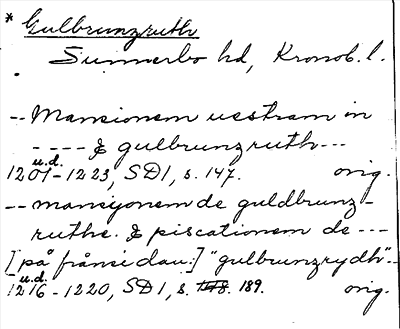 * Gulbrunzruth
Sunnerbo hd, Kronob. l.
-- Mansionem uestram in
---- & gulbrunzruth---
u.d.
1201-1223, SD1, s. 147. orig.
-- mansyonem de guldbrunz-
ruthe. & piscationem de ---
[på frånsidau:] "gulbrunzrydh"--
u.d.
1216-1220, SD1, s. 189. orig.